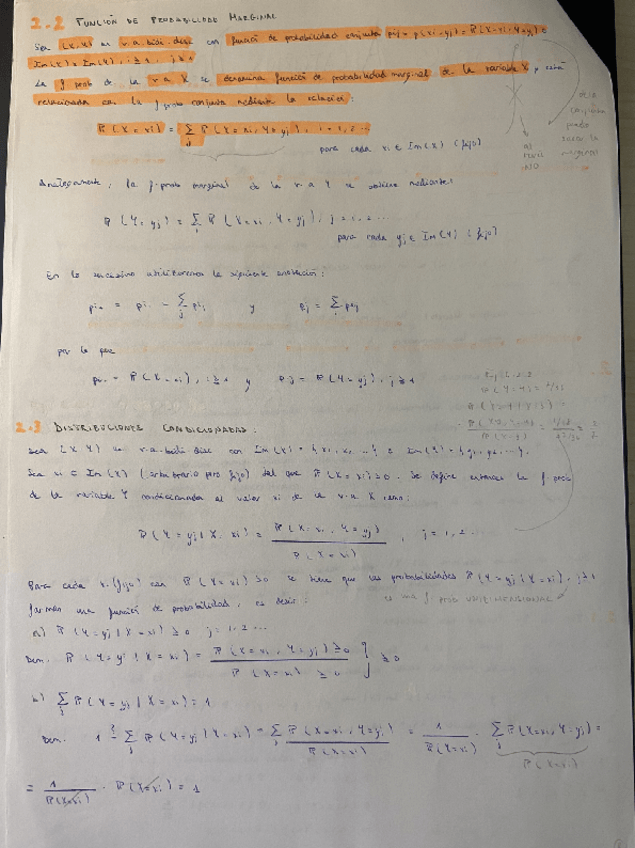 2.2 FUNCIÓN DE PROBABILIDAD MARGINAL
Sea (X,Y) un v.a. bidi. disc con función de probabilidad conjunta pij = p(xi,yj) = P(X=xi, Y=yj),
Im(X) × Im(Y), i≥1, j≥1
La f. prob de la v.a X se denomina función de probabilidad marginal de la variable X y está
relacionada con la f. prob conjunta mediante la relación:
P(X=xi) = Σj P(X=xi, Y=yj), i=1,2...
para cada xi ∈ Im(X) (fijo)
de la
conjunta
puedo
sacar la
marginal
al
revés
NO
Análogamente, la f. prob marginal de la v.a Y se obtiene mediante:
P(Y=yj) = Σi P(X=xi, Y=yj), j=1,2...
para cada yj ∈ Im(Y) (fijo)
En lo sucesivo utilizaremos la siguiente notación:
pi· = Σj pij y p·j = Σi pij
por lo que
pi· = P(X=xi), i≥1 y p·j = P(Y=yj), j≥1
2.3 DISTRIBUCIONES CONDICIONADAS:
Sea (X,Y) un v.a. bidi. disc con Im(X) = {x1, x2, ...} e Im(Y) = {y1, y2, ...}.
Sea xi ∈ Im(X) (arbitrario pero fijo) tal que P(X=xi)>0. Se define entonces la f. prob
de la variable Y condicionada al valor xi de la v.a X como:
P(Y=yj | X=xi) = P(X=xi, Y=yj) / P(X=xi), j=1,2...
Para cada xi (fijo) con P(X=xi)>0 se tiene que las probabilidades P(Y=yj | X=xi), j≥1
forman una función de probabilidad, es decir:
es una f. prob UNIDIMENSIONAL
a) P(Y=yj | X=xi) ≥ 0 j=1,2...
Dem. P(Y=yj | X=xi) = P(X=xi, Y=yj) ≥0 / P(X=xi) ≥0 } ≥0
b) Σj P(Y=yj | X=xi) = 1
Dem. 1 ?= Σj P(Y=yj | X=xi) = Σj P(X=xi, Y=yj) / P(X=xi) = 1 / P(X=xi) · Σj P(X=xi, Y=yj) =
P(X=xi)
= 1 / P(X=xi) · P(X=xi) = 1